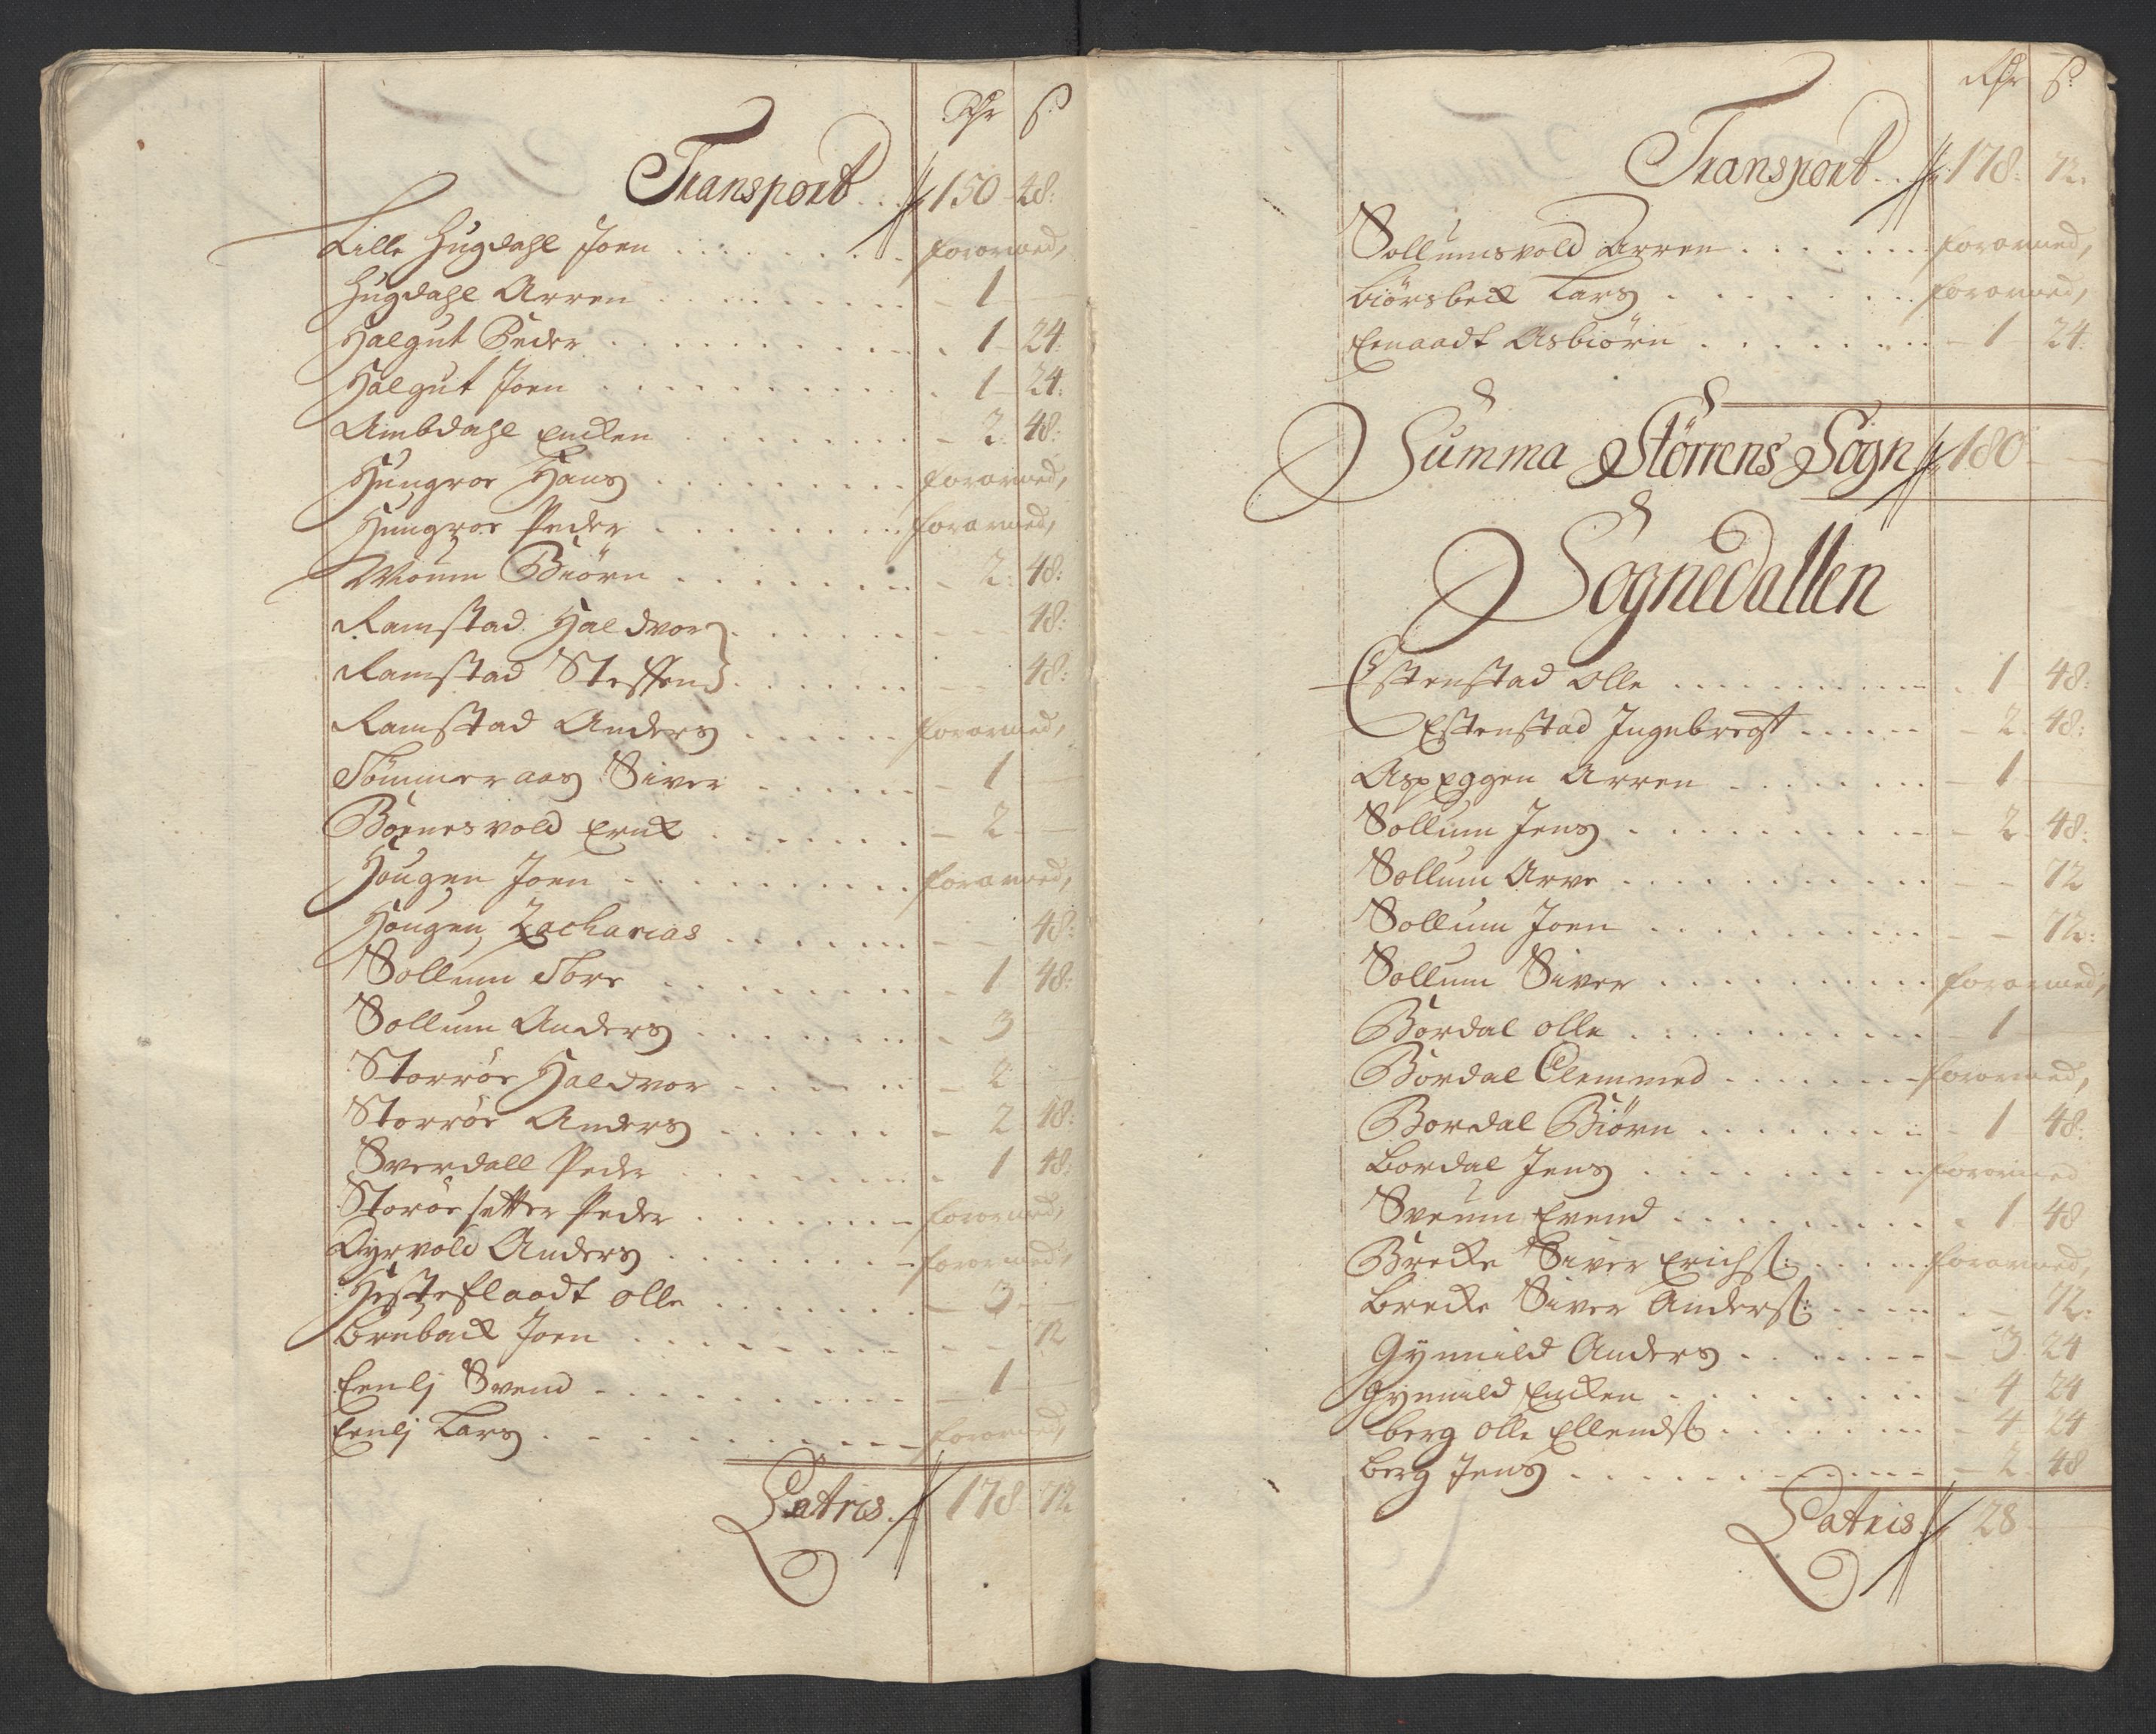 Rdr ß
Transport .. 150 48:
Lille Hugdahl Joen . . . . . . . forarmed,
Hugdahl Arren . . . . . . . 1
Halgut Peder . . . . . . . 1 24:
Halgut Joen . . . . . . . 1 24:
Ambdahl Encken . . . . . . . 2: 48:
Hungroe Hans . . . . . . . forarmed,
Hungroe Peder . . . . . . . forarmed,
Moum Biörn . . . . . . . 2: 48:
Ramstad Haldvor . . . . . . . 48:
Ramstad Steffen . . . . . . . 48:
Ramstad Anders . . . . . . . forarmed,
Tömmeraas Siver . . . . . . . 1
Börnesvold Erick . . . . . . . 2
Hougen Joen . . . . . . . forarmed,
Hougen Zacharias . . . . . . . 48:
Sollum Tore . . . . . . . 1 48:
Sollum Anders . . . . . . . 3
Storröe Haldvor . . . . . . . 2
Storröe Anders . . . . . . . 2 48:
Sverdall Peder . . . . . . . 1 48:
Storöe setter Peder . . . . . . . forarmed,
Dyrvold Anders . . . . . . . forarmed,
Hesteflaadt Olle . . . . . . . 3
Bruback Joen . . . . . . . 72
Eenlj Svend . . . . . . . 1
Eenlj Lars . . . . . . . forarmed,
Latris. 178 72
Rdr ß
Transport .. 178: 72.
Sollumsvold Arren . . . . . . . forarmed,
Biörsbeck Lars . . . . . . . forarmed,
Eenaadt Asbiörn . . . . . . . 1 24.
Summa Störrens Sogn 180
Sognedallen
Estenstad Olle . . . . . . . 1 48:
Estenstad Ingebregt . . . . . . . 2 48:
Aspeggen Arren . . . . . . . 1
Sollum Jens . . . . . . . 2 48:
Sollum Arve . . . . . . . 72
Sollum Joen . . . . . . . 72:
Sollum Siver . . . . . . . forarmed,
Bordal Olle . . . . . . . 1
Bordal Clemmed . . . . . . . forarmed,
Bordal Biörn . . . . . . . 1 48:
Bordal Jens . . . . . . . forarmed
Sveum Evend . . . . . . . 1 48
Brecke Siver Erichs: . . . . . forarmed,
Brecke Siver Anders: . . . . . 72:
Gynnild Anders . . . . . . . 3 24
Gynnild Encken . . . . . . . 4 24
Berg Olle Ellends . . . . . . . 4 24
Berg Jens . . . . . . . 2 48
Latris 28